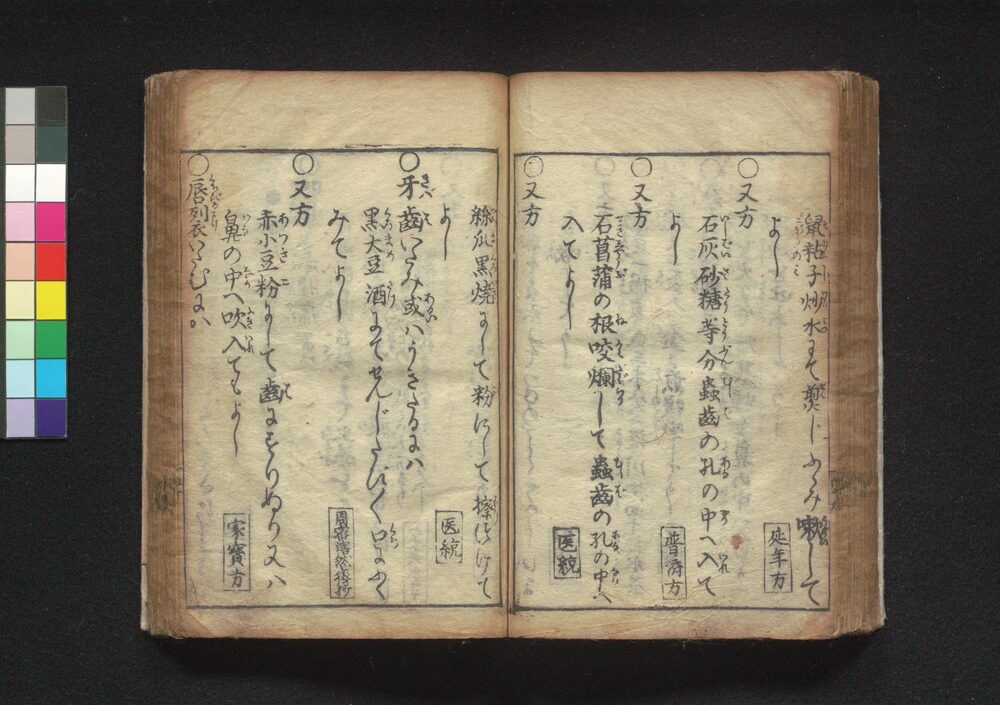 鼠粘子炒水にて煎じふくみ嗽して
よし
延年方
○又方
石灰砂糖等分蟲歯の孔の中へ入て
よし
普済方
○又方
石菖蒲の根咬爛して蟲歯の孔の中へ
入てよし
医統
○又方
絲瓜黒焼にして粉にして擦つけて
よし
医統
○牙歯いたみ或ハうきたるにハ
黒大豆酒にてせんじたび〱口にふく
みてよし
○又方
赤小豆粉にして歯にすりぬり又ハ
鼻の中へ吹入てもよし
家寶方
○唇列衣いたむにハ